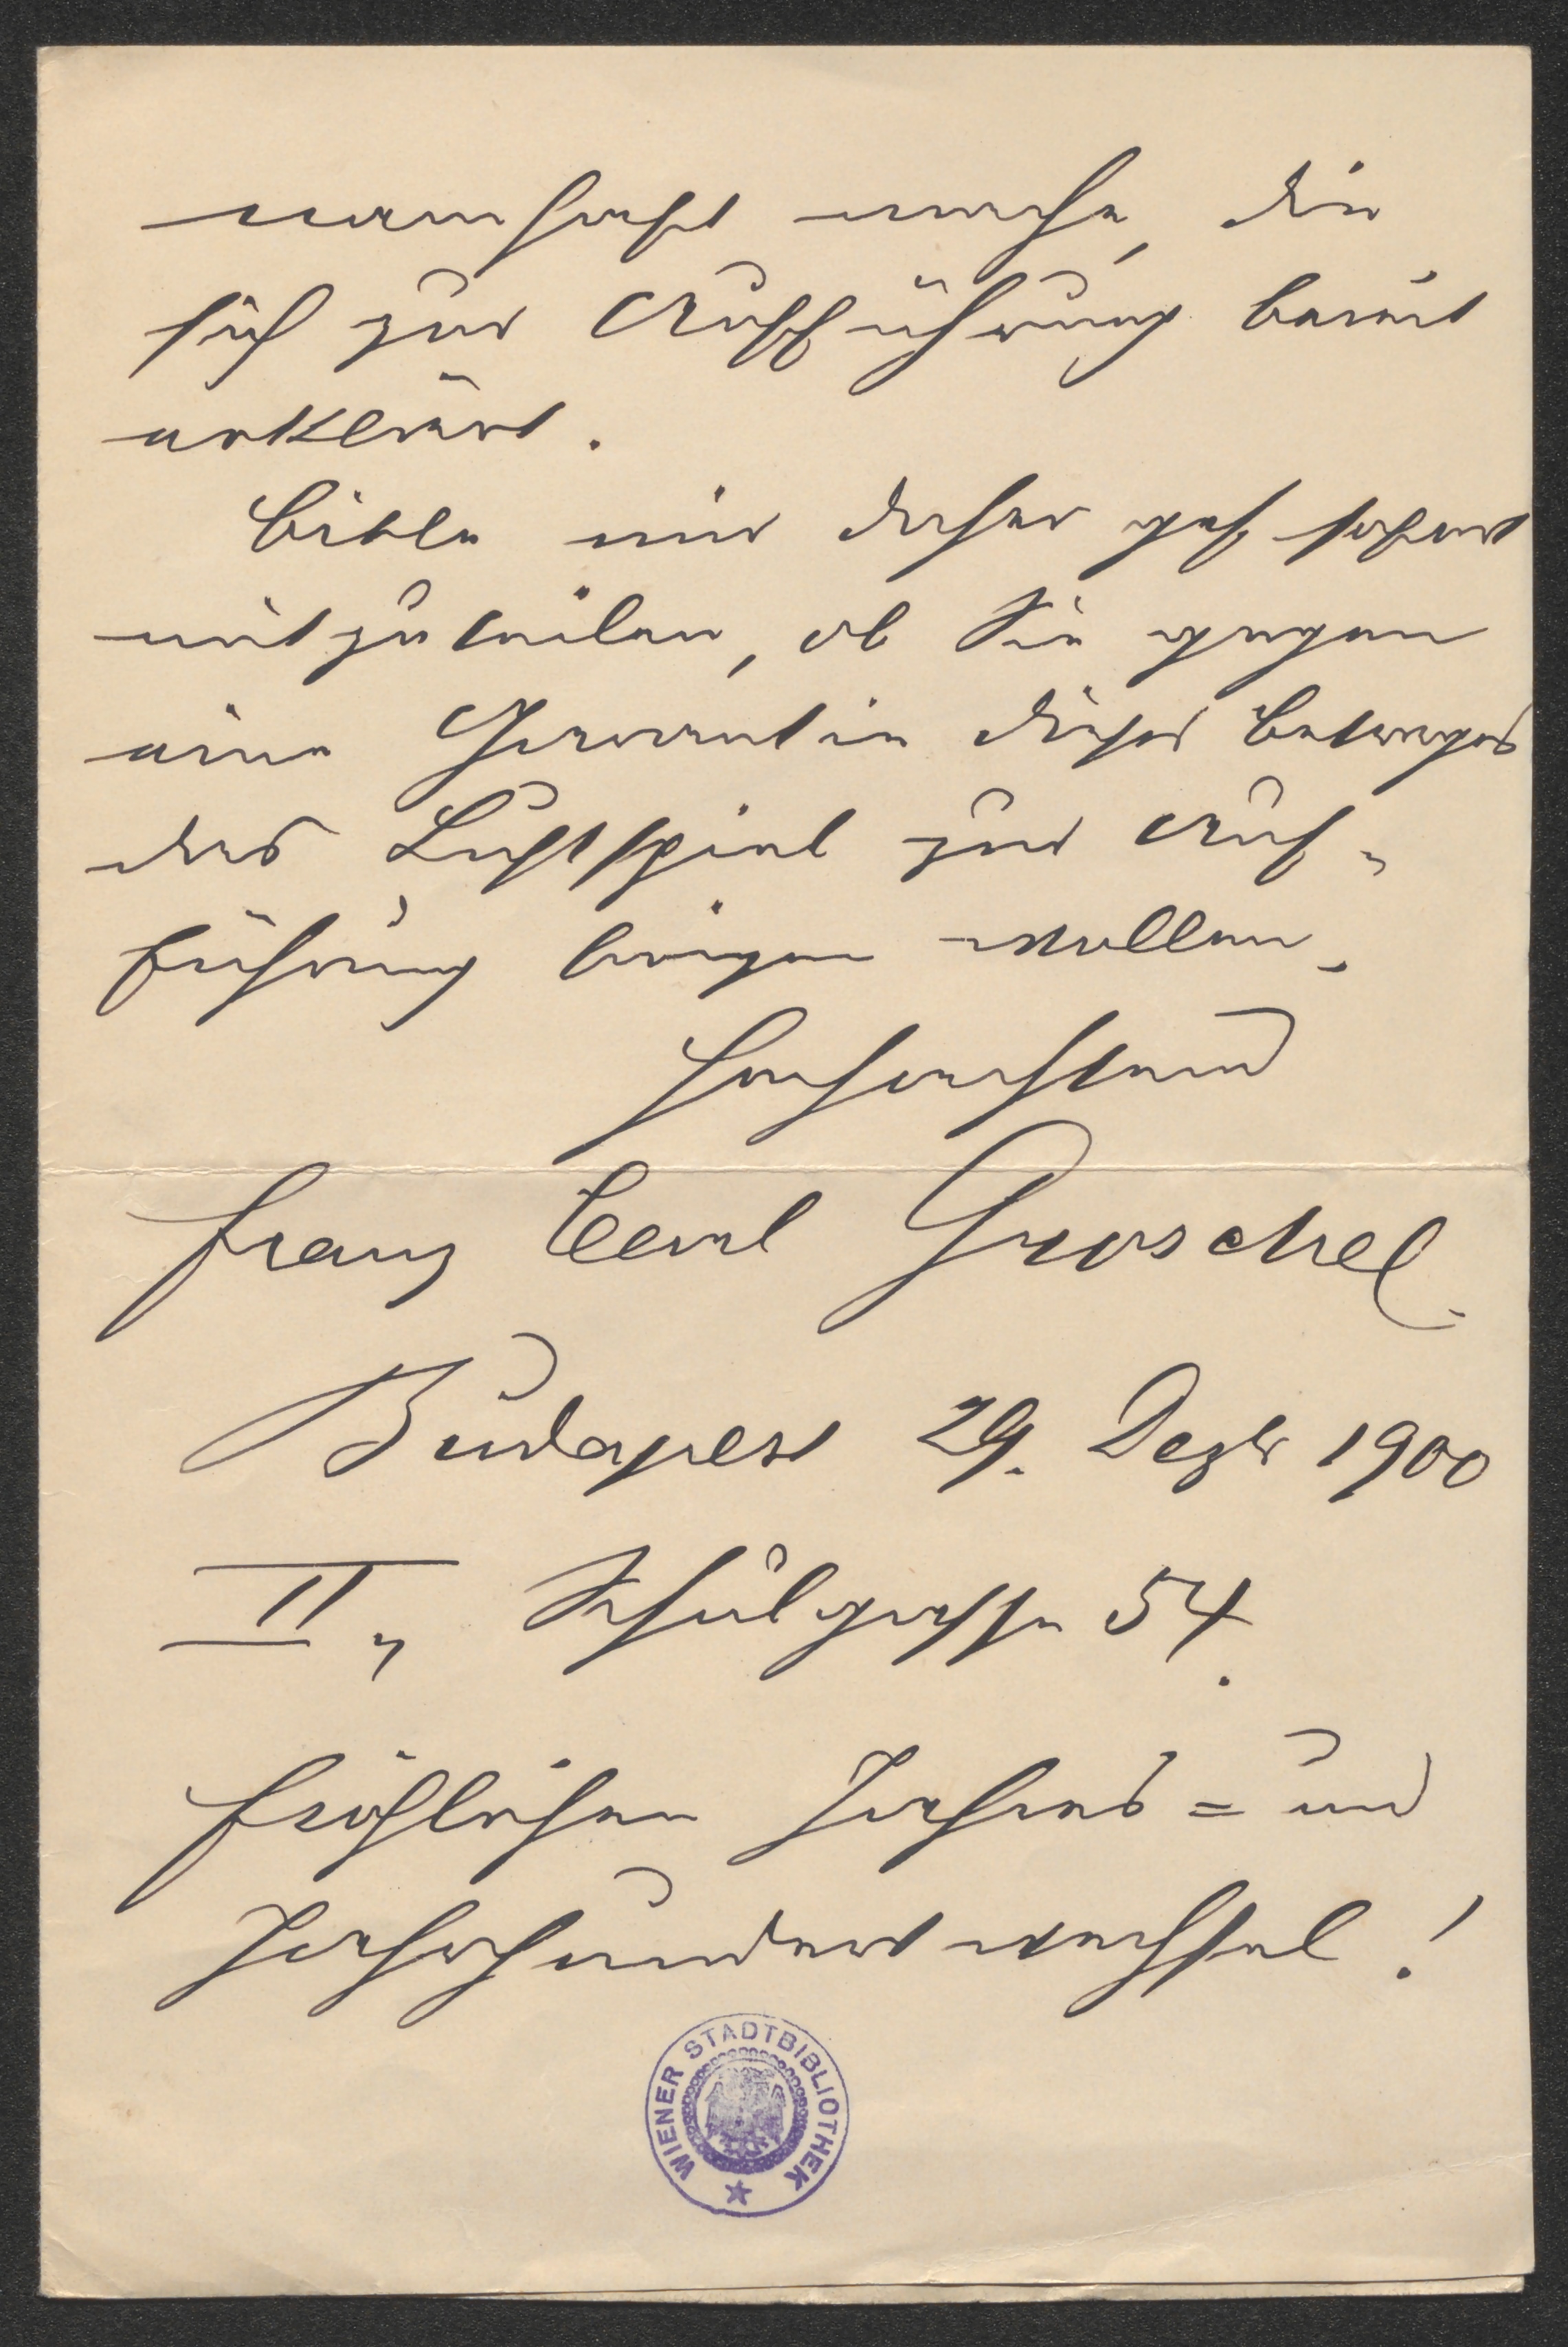 namhaft mache, die
sich zur Aufführung bereit
erklärt.
Bitte mir daher gefl sofort
mitzuteilen, ob Sie gegen
eine Garantie dieses Betrages
das Lustspiel zur Auf-
führung bringen wollen.
Hochachtend
Franz Carl Groschel.
Budapest 29. Dezbr 1900
II, Schulgasse 54.
Fröhlichen Jahres= und
Jahrhundertwechsel!
WIENER STADTBIBLIOTHEK